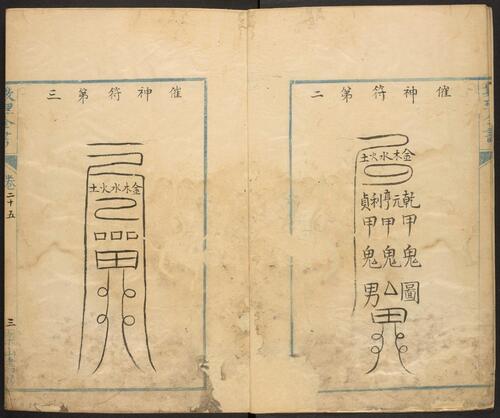 催神符第二
金木水火土
乾元亨利貞
甲甲甲
鬼鬼鬼
圖男
催神符第三
金木水火土
卷二十五
三